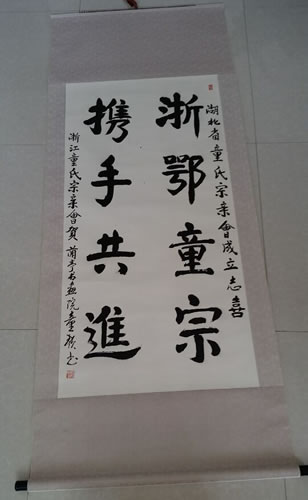 湖北省童氏宗亲會成立志喜
浙鄂童宗
携手共進
浙江童氏宗亲會贺 蘭亭书画院童